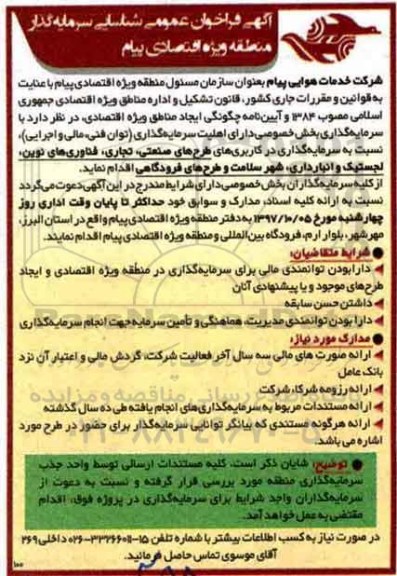 آگهی فراخوان عمومی شناسایی سرمایه‌گذار
منطقه ویژه اقتصادی پیام
شرکت خدمات هوایی پیام بعنوان سازمان مسئول منطقه ویژه اقتصادی پیام با عنایت
به قوانین و مقررات جاری کشور، قانون تشکیل و اداره مناطق ویژه اقتصادی جمهوری
اسلامی مصوب ۱۳۸۴ و آیین‌نامه چگونگی ایجاد مناطق ویژه اقتصادی، در نظر دارد با
سرمایه‌گذاری بخش خصوصی دارای اهلیت سرمایه‌گذاری (توان فنی، مالی و اجرایی)،
نسبت به سرمایه‌گذاری در کاربری‌های طرح‌های صنعتی، تجاری، فناوری‌های نوین،
لجستیک و انبارداری، شهر سلامت و طرح‌های فرودگاهی اقدام نماید.
از کلیه سرمایه‌گذاران بخش خصوصی دارای شرایط مندرج در این آگهی دعوت می‌گردد
نسبت به ارائه کلیه اسناد، مدارک و سوابق خود حداکثر تا پایان وقت اداری روز
چهارشنبه مورخ ۱۳۹۷/۱۰/۰۵ به دفتر منطقه ویژه اقتصادی پیام واقع در استان البرز،
مهرشهر، بلوار ارم، فرودگاه بین‌المللی و منطقه ویژه اقتصادی پیام اقدام نمایند.
شرایط متقاضیان:
دارا بودن توانمندی مالی برای سرمایه‌گذاری در منطقه ویژه اقتصادی و ایجاد
طرح‌های موجود و یا پیشنهادی آنان
داشتن حسن سابقه
دارا بودن توانمندی مدیریت، هماهنگی و تأمین سرمایه جهت انجام سرمایه‌گذاری
مدارک مورد نیاز:
ارائه صورت های مالی سه سال آخر فعالیت شرکت، گردش مالی و اعتبار آن نزد
بانک عامل
ارائه رزومه شرکا، شرکت
ارائه مستندات مربوط به سرمایه‌گذاری‌های انجام یافته طی ده سال گذشته
ارائه هرگونه مستندی که بیانگر توانایی سرمایه‌گذار برای حضور در طرح مورد
اشاره می باشد.
توضیح: شایان ذکر است، کلیه مستندات ارسالی توسط واحد جذب
سرمایه‌گذاری منطقه مورد بررسی قرار گرفته و نسبت به دعوت از
سرمایه‌گذاران واجد شرایط برای سرمایه‌گذاری در پروژه فوق، اقدام
مقتضی به عمل خواهد آمد.
در صورت نیاز به کسب اطلاعات بیشتر با شماره تلفن ۱۵-۳۳۲۶۶۰۱۱-۰۲۶ داخلی ۲۶۹
آقای موسوی تماس حاصل فرمائید.